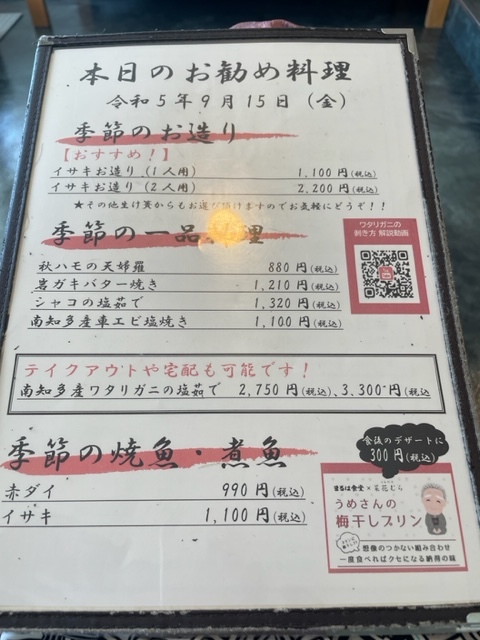 本日のお勧め料理
令和5年9月15日（金）
季節のお造り
【おすすめ！】
イサキお造り（1人用） 1,100円(税込)
イサキお造り（2人用） 2,200円(税込)
★その他生け簀からもお造り頂けますのでお気軽にどうぞ！！
季節の一品料理
秋ハモの天婦羅 880円(税込)
岩ガキバター焼き 1,210円(税込)
シャコの塩茹で 1,320円(税込)
南知多産車エビ塩焼き 1,100円(税込)
ワタリガニの
剥き方 解説動画
テイクアウトや宅配も可能です！
南知多産ワタリガニの塩茹で 2,750円(税込)、3,300円(税込)
季節の焼魚・煮魚
赤ダイ 990円(税込)
イサキ 1,100円(税込)
食後のデザートに
300円(税込)
まるは食堂×花花むら
うめさんの
梅干しプリン
想像のつかない組み合わせ
一度食べればクセになる納得の味